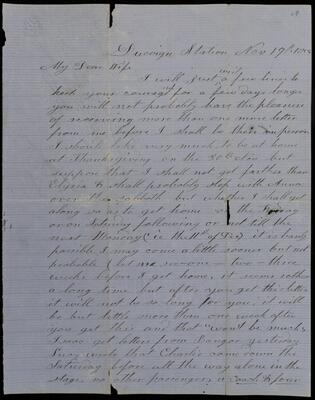 Nov 19th
My Dear Wife
I will just write a few lines to
keep your courage for a few days longer
you will not probably have the pleasure
of receiving more than one more letter
from me before I shall be there in person
I should like very much to be at home
at Thanksgiving on the 30th
suppose that I shall not get farther than
Elyria & shall probably stop with Anna
over the sabbath but whether I shall get
along so as to get home on the
or on Saturday following or not till the
next Monday (ie the 11th of Dec) it is hardly
possible I may come a little sooner but not
probable (let me see one - two - three
weeks before I get home, it seems rather
a long time but after you get this letter
it will not be so long for you, it will
be but little more than one week after
you get this and that "won't be much"
I rec'd letters from Bangor yesterday
Lucy wrote that Charlie came down the
Saturday before all the way alone in the
stage no other passengers, a coach & four